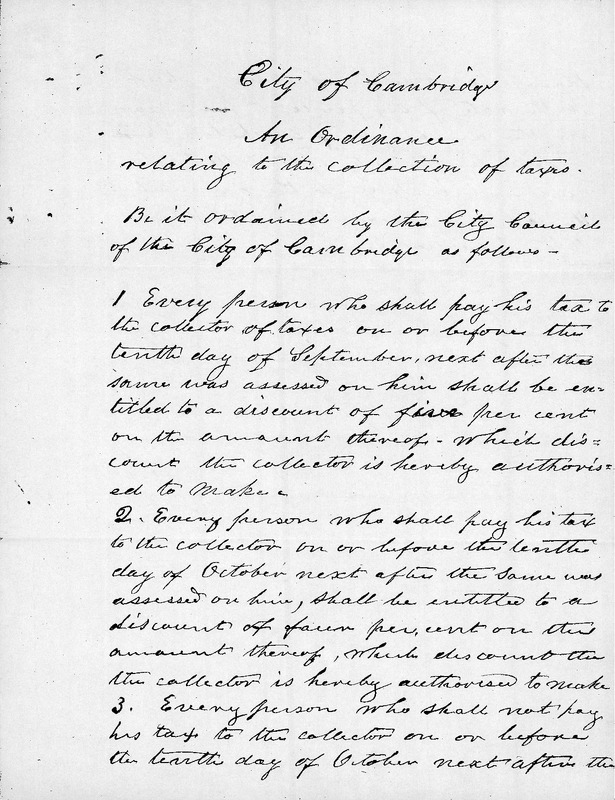 City of Cambridge
An Ordinance
relating to the collection of taxes.
Be it ordained by the City Council
of the City of Cambridge as follows -
1 Every person who shall pay his tax to
the collector of taxes on or before the
tenth day of September, next after the
same was assessed on him shall be en=
titled to a discount of five per cent
on the amount thereof - which dis=
count the collector is hereby authoris=
ed to make.
2. Every person who shall pay his tax
to the collector on or before the tenth
day of October next after the same was
assessed on him, shall be entitled to a
discount of four per, cent on the
amount thereof, which discount the
the collector is hereby authorised to make
3. Every person who shall not pay
his tax to the collector on or before
the tenth day of October next after the